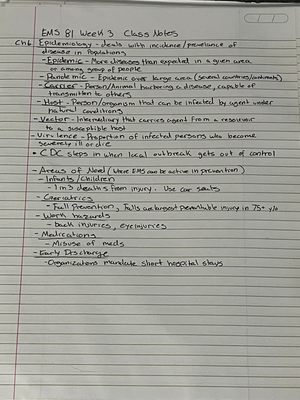 EMS 81 Week 3 Class Notes
Ch6 Epidemiology - deals with incidence/prevelance of
disease in Populations
- Epidemic - More diseases than expected in a given area
or among group of people
- Pandemic - Epidemic over large area (several countries/continents)
- Carrier - Person/Animal harboring a disease, capable of
transmitten to others
- Host - Person/organism that can be infected by agent under
natural conditions
- Vector - Intermediary that carries agent from a resevoir
to a susceptible host
- Virulence - Proportion of infected persons who become
severely ill or die
• CDC steps in when local outbreak gets out of control
- Areas of Need (Where EMS can be active in prevention)
- Infants/Children
- 1 in 3 deaths from injury. Use car seats
- Geriatrics
- Fall Prevention, Falls are largest preventable injury in 75+ y/o
- Work hazards
- back injuries, eye injuries
- Medications
- Misuse of meds
- Early Discharge
- Organizations mandate short hospital stays